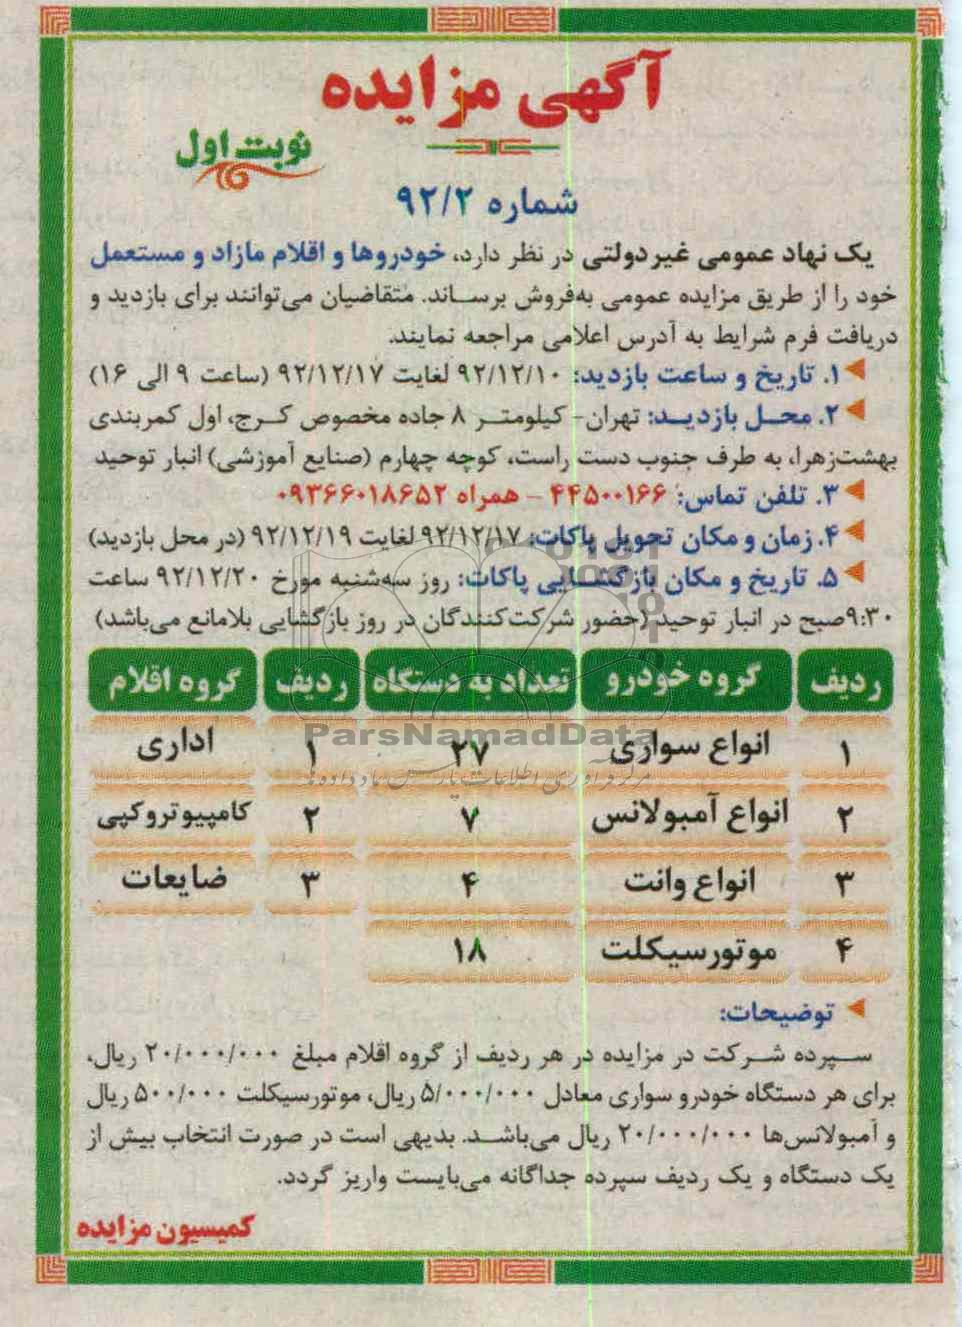 آگهی مزایده
نوبت اول
شماره ۹۲/۲
یک نهاد عمومی غیردولتی در نظر دارد، خودروها و اقلام مازاد و مستعمل
خود را از طریق مزایده عمومی به‌فروش برساند. متقاضیان می‌توانند برای بازدید و
دریافت فرم شرایط به آدرس اعلامی مراجعه نمایند.
۱. تاریخ و ساعت بازدید: ۹۲/۱۲/۱۰ لغایت ۹۲/۱۲/۱۷ (ساعت ۹ الی ۱۶)
۲. محل بازدید: تهران- کیلومتر ۸ جاده مخصوص کرج، اول کمربندی
بهشت‌زهرا، به طرف جنوب دست راست، کوچه چهارم (صنایع آموزشی) انبار توحید
۳. تلفن تماس: ۴۴۵۰۰۱۶۶ - همراه ۰۹۳۶۶۰۱۸۶۵۲
۴. زمان و مکان تحویل پاکات: ۹۲/۱۲/۱۷ لغایت ۹۲/۱۲/۱۹ (در محل بازدید)
۵. تاریخ و مکان بازگشایی پاکات: روز سه‌شنبه مورخ ۹۲/۱۲/۲۰ ساعت
۹:۳۰صبح در انبار توحید (حضور شرکت‌کنندگان در روز بازگشایی بلامانع می‌باشد)
ردیف گروه خودرو تعداد به دستگاه ردیف گروه اقلام
۱ انواع سواری ۲۷ ۱ اداری
ParsNamadData
مرکز فرآوری اطلاعات پارس نماد داده‌ها
۲ انواع آمبولانس ۷ ۲ کامپیوتروکپی
۳ انواع وانت ۴ ۳ ضایعات
۴ موتورسیکلت ۱۸
توضیحات:
سپرده شرکت در مزایده در هر ردیف از گروه اقلام مبلغ ۲۰/۰۰۰/۰۰۰ ریال،
برای هر دستگاه خودرو سواری معادل ۵/۰۰۰/۰۰۰ ریال، موتورسیکلت ۵۰۰/۰۰۰ ریال
و آمبولانس‌ها ۲۰/۰۰۰/۰۰۰ ریال می‌باشد. بدیهی است در صورت انتخاب بیش از
یک دستگاه و یک ردیف سپرده جداگانه می‌بایست واریز گردد.
کمیسیون مزایده